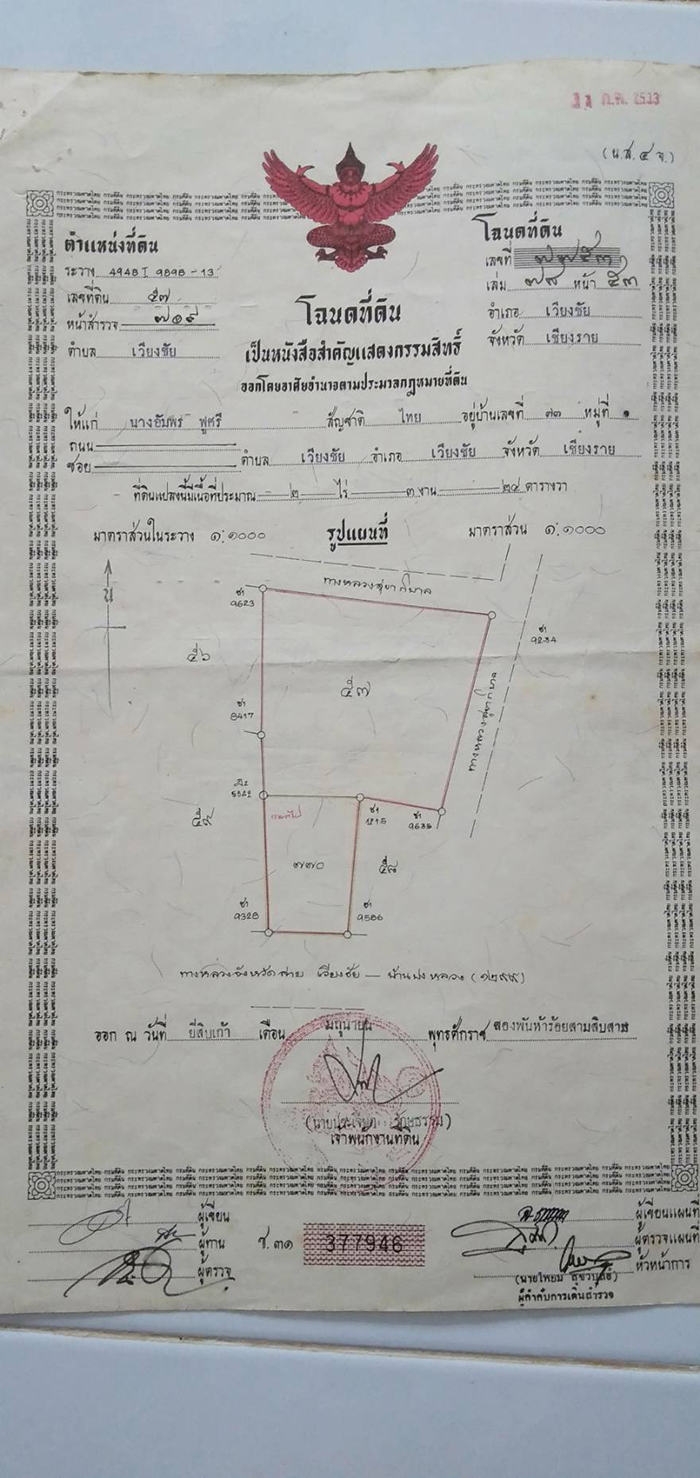 (น.ส.๔ จ.)
ตำแหน่งที่ดิน
ระวาง 4948 I 9898-13
เลขที่ดิน ๕๗
หน้าสำรวจ ๗๑๙
ตำบล เวียงชัย
โฉนดที่ดิน
เลขที่
เล่ม ๗๘ หน้า ๕๓
อำเภอ เวียงชัย
จังหวัด เชียงราย
โฉนดที่ดิน
เป็นหนังสือสำคัญแสดงกรรมสิทธิ์
ออกโดยอาศัยอำนาจตามประมวลกฎหมายที่ดิน
ให้แก่ นางอัมพร ฟูศรี สัญชาติ ไทย อยู่บ้านเลขที่ ๗๓ หมู่ที่ ๑
ถนน
ซอย ตำบล เวียงชัย อำเภอ เวียงชัย จังหวัด เชียงราย
ที่ดินแปลงนี้มีเนื้อที่ประมาณ ๒ ไร่ ๓ งาน ๒๔ ตารางวา
มาตราส่วนในระวาง ๑:๑๐๐๐ รูปแผนที่ มาตราส่วน ๑:๑๐๐๐
น
ทางหลวงสุขาภิบาล
ช๑
9623
ช๑
9234
๕๖
๕๗
ทางหลวงสุขาภิบาล
ช๑
8417
๕๙
ช๑
1215
ช๑
9635
๗๗๐
๕๘
ช๑
9328
ช๑
9586
ทางหลวงจังหวัดสาย เวียงชัย — บ้านปงหลวง (๑๒๙๙)
ออก ณ วันที่ ยี่สิบเก้า เดือน มิถุนายน พุทธศักราช สองพันห้าร้อยสามสิบสาม
เจ้าพนักงานที่ดิน
ผู้เขียน
ผู้ทาน
ผู้ตรวจ
ช.๓๑ 377946
ผู้เขียนแผนที่
ผู้ตรวจแผนที่
หัวหน้าการ
ผู้กำกับการเดินสำรวจ